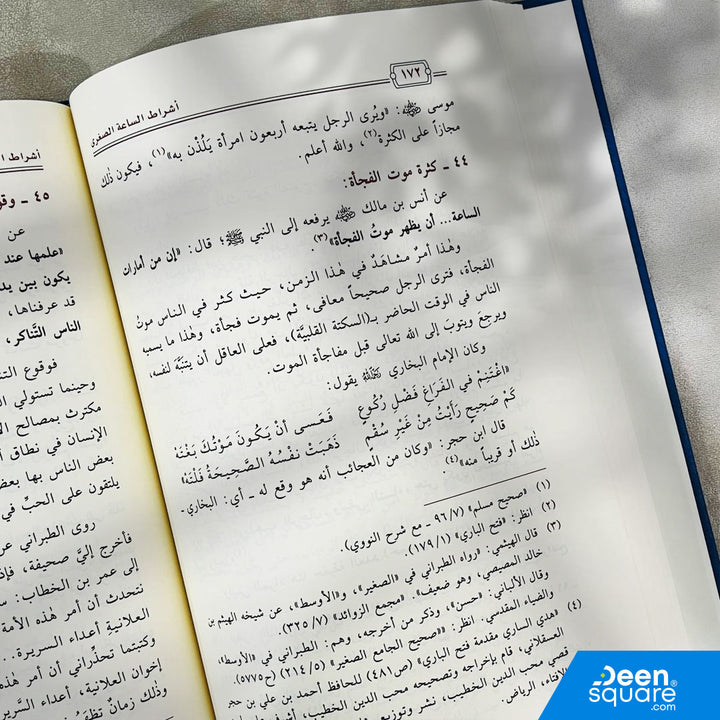 ١٧٢
أشراط الساعة الصغرى
موسى ﷺ: «ويُرى الرجل يتبعه أربعون امرأة يَلُذْن به»(١)، فيكون ذلك
مجازاً على الكثرة(٢)، والله أعلم.
٤٤ - كثرة موت الفجأة:
عن أنس بن مالك ﷺ يرفعه إلى النبي ﷺ؛ قال: «إن من أمارات
الساعة... أن يظهر موتُ الفجأة»(٣).
وهٰذا أمرٌ مشاهَدٌ في هٰذا الزمن، حيث كثر في الناس موتُ
الفجأة، فترى الرجل صحيحاً معافى، ثم يموت فجأة، وهٰذا ما يسميه
الناس في الوقت الحاضر بـ(السكتة القلبيَّة)، فعلى العاقل أن يتنبَّه لنفسه،
ويرجعَ ويتوبَ إلى الله تعالى قبل مفاجأة الموت.
وكان الإمام البخاري يقول:
«اغْتَنِمْ في الفَرَاغِ فَضْلَ رُكُوعٍ فَعَسى أَنْ يَكُونَ مَوْتُكَ بَغْتَهْ
كَمْ صَحيحٍ رَأَيْتُ مِنْ غَيْرِ سُقْمٍ ذَهَبَتْ نَفْسُهُ الصَّحيحَةُ فَلْتَهْ»
قال ابن حجر: «وكان من العجائب أنه هو وقع له - أي: البخاري -
ذلك أو قريباً منه»(٤).
(١) «صحيح مسلم» (٩٦/٧ - مع شرح النووي).
(٢) انظر: «فتح الباري» (١٧٩/١).
(٣) قال الهيثمي: «رواه الطبراني في «الصغير»، و«الأوسط»، عن شيخه الهيثم بن
خالد المصيصي، وهو ضعيف». «مجمع الزوائد» (٣٢٥/٧).
وقال الألباني: «حسن»، وذكر من أخرجه، وهم: الطبراني في «الأوسط»،
والضياء المقدسي. انظر: «صحيح الجامع الصغير» (٢١٤/٥) (ح٥٧٧٥).
(٤) «هدي الساري مقدمة فتح الباري» (ص٤٨١) للحافظ أحمد بن علي بن حجر
العسقلاني، قام بإخراجه وتصحيحه محب الدين الخطيب، أشرف
قصي محب الدين الخطيب، نشر وتوزيع
الإفتاء، الرياض.
أشراط ال
٤٥ - وقو
عن
«علمها عند
يكون بين يد
قد عرفناها،
الناس التَّناكر،
فوقوع التن
وحينما تستولي ال
مكترث بمصالح ال
الإنسان في نطاق أ
بعض الناس بها بعض
يلتقون على الحبِّ في
روى الطبراني عن
فأخرج إليَّ صحيفة، فإذ
إلى عمر بن الخطاب: س
نتحدث أن أمر هٰذه الأمة
العلانيةِ أعداء السريرة...
وكتبتما تحذِّراني أن أمر هٰذه
إخوان العلانية، أعداء السَّرير
وذلك زمانٌ تظهر
Deen
square®
.com